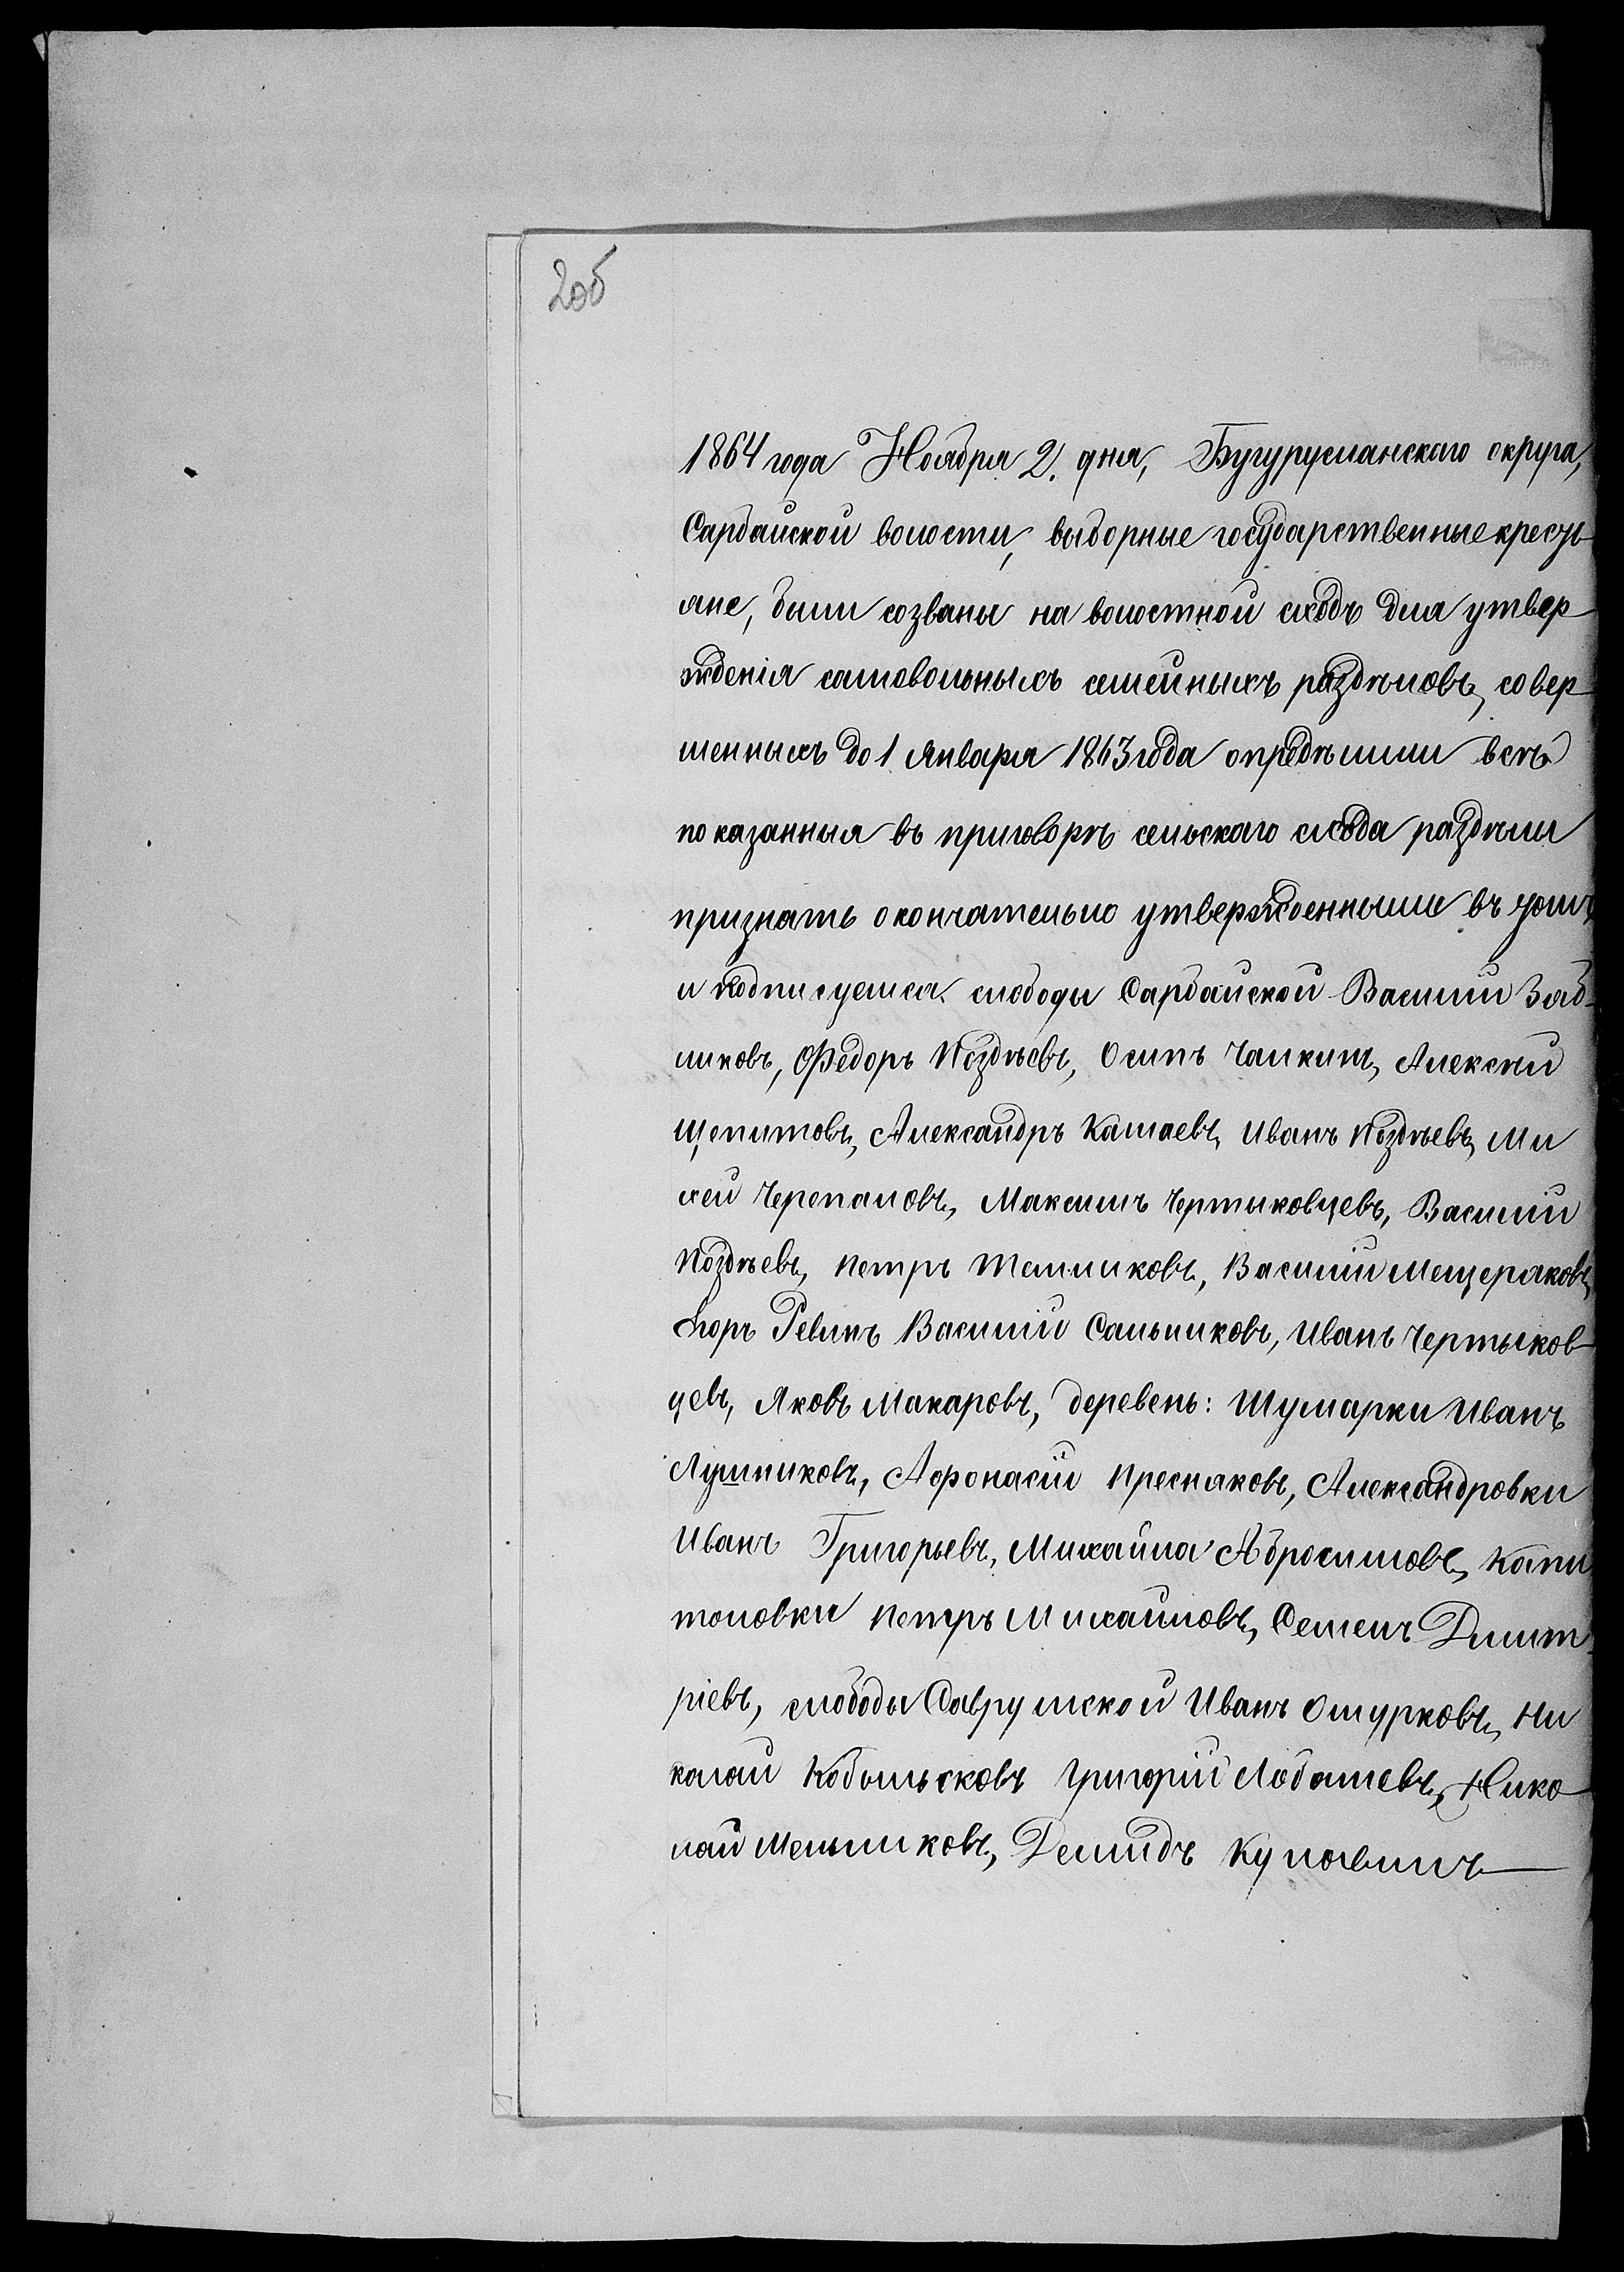 2об
1864 года Ноября 2. дня, Бугурусланскаго округа,
Сарбайской волости, выборные государственные кресть
яне, были созваны на волостной сходъ для утвер
жденія самовольныхъ семейныхъ раздѣловъ, совер
шенныхъ до 1 Января 1863 года опредѣлили всѣ
показанныя въ приговорѣ сельскаго схода раздѣлы
признать окончательно утвержденными въ чомъ
и подписуемся слободы Сарбайской Василий Зяб-
ликовъ, Федоръ Поздѣевъ, Осипъ Чалкинъ, Алексѣй
Щепитовъ, Александръ Камаевъ, Иванъ Поздѣевъ, Ми
хей Черепановъ, Максимъ Чертыковцевъ, Василий
Поздѣевъ, Петръ Темниковъ, Василий Мещеряковъ,
Егоръ Ревинъ Василий Сальниковъ, Иванъ Чертыков
цевъ, Яковъ Макаровъ, деревень: Шумарки Иванъ
Лушниковъ, Афонасій Пресняковъ, Александровки
Иванъ Григорьевъ, Михайла Абросимовъ, Капи
толовки Петръ Михайловъ, Семенъ Дмит
ріевъ, слободы Саврушской Иванъ Ошурковъ, Ни
колай Кобыльсковъ Григорій Лобашевъ, Нико
лай Мельниковъ, Демидъ